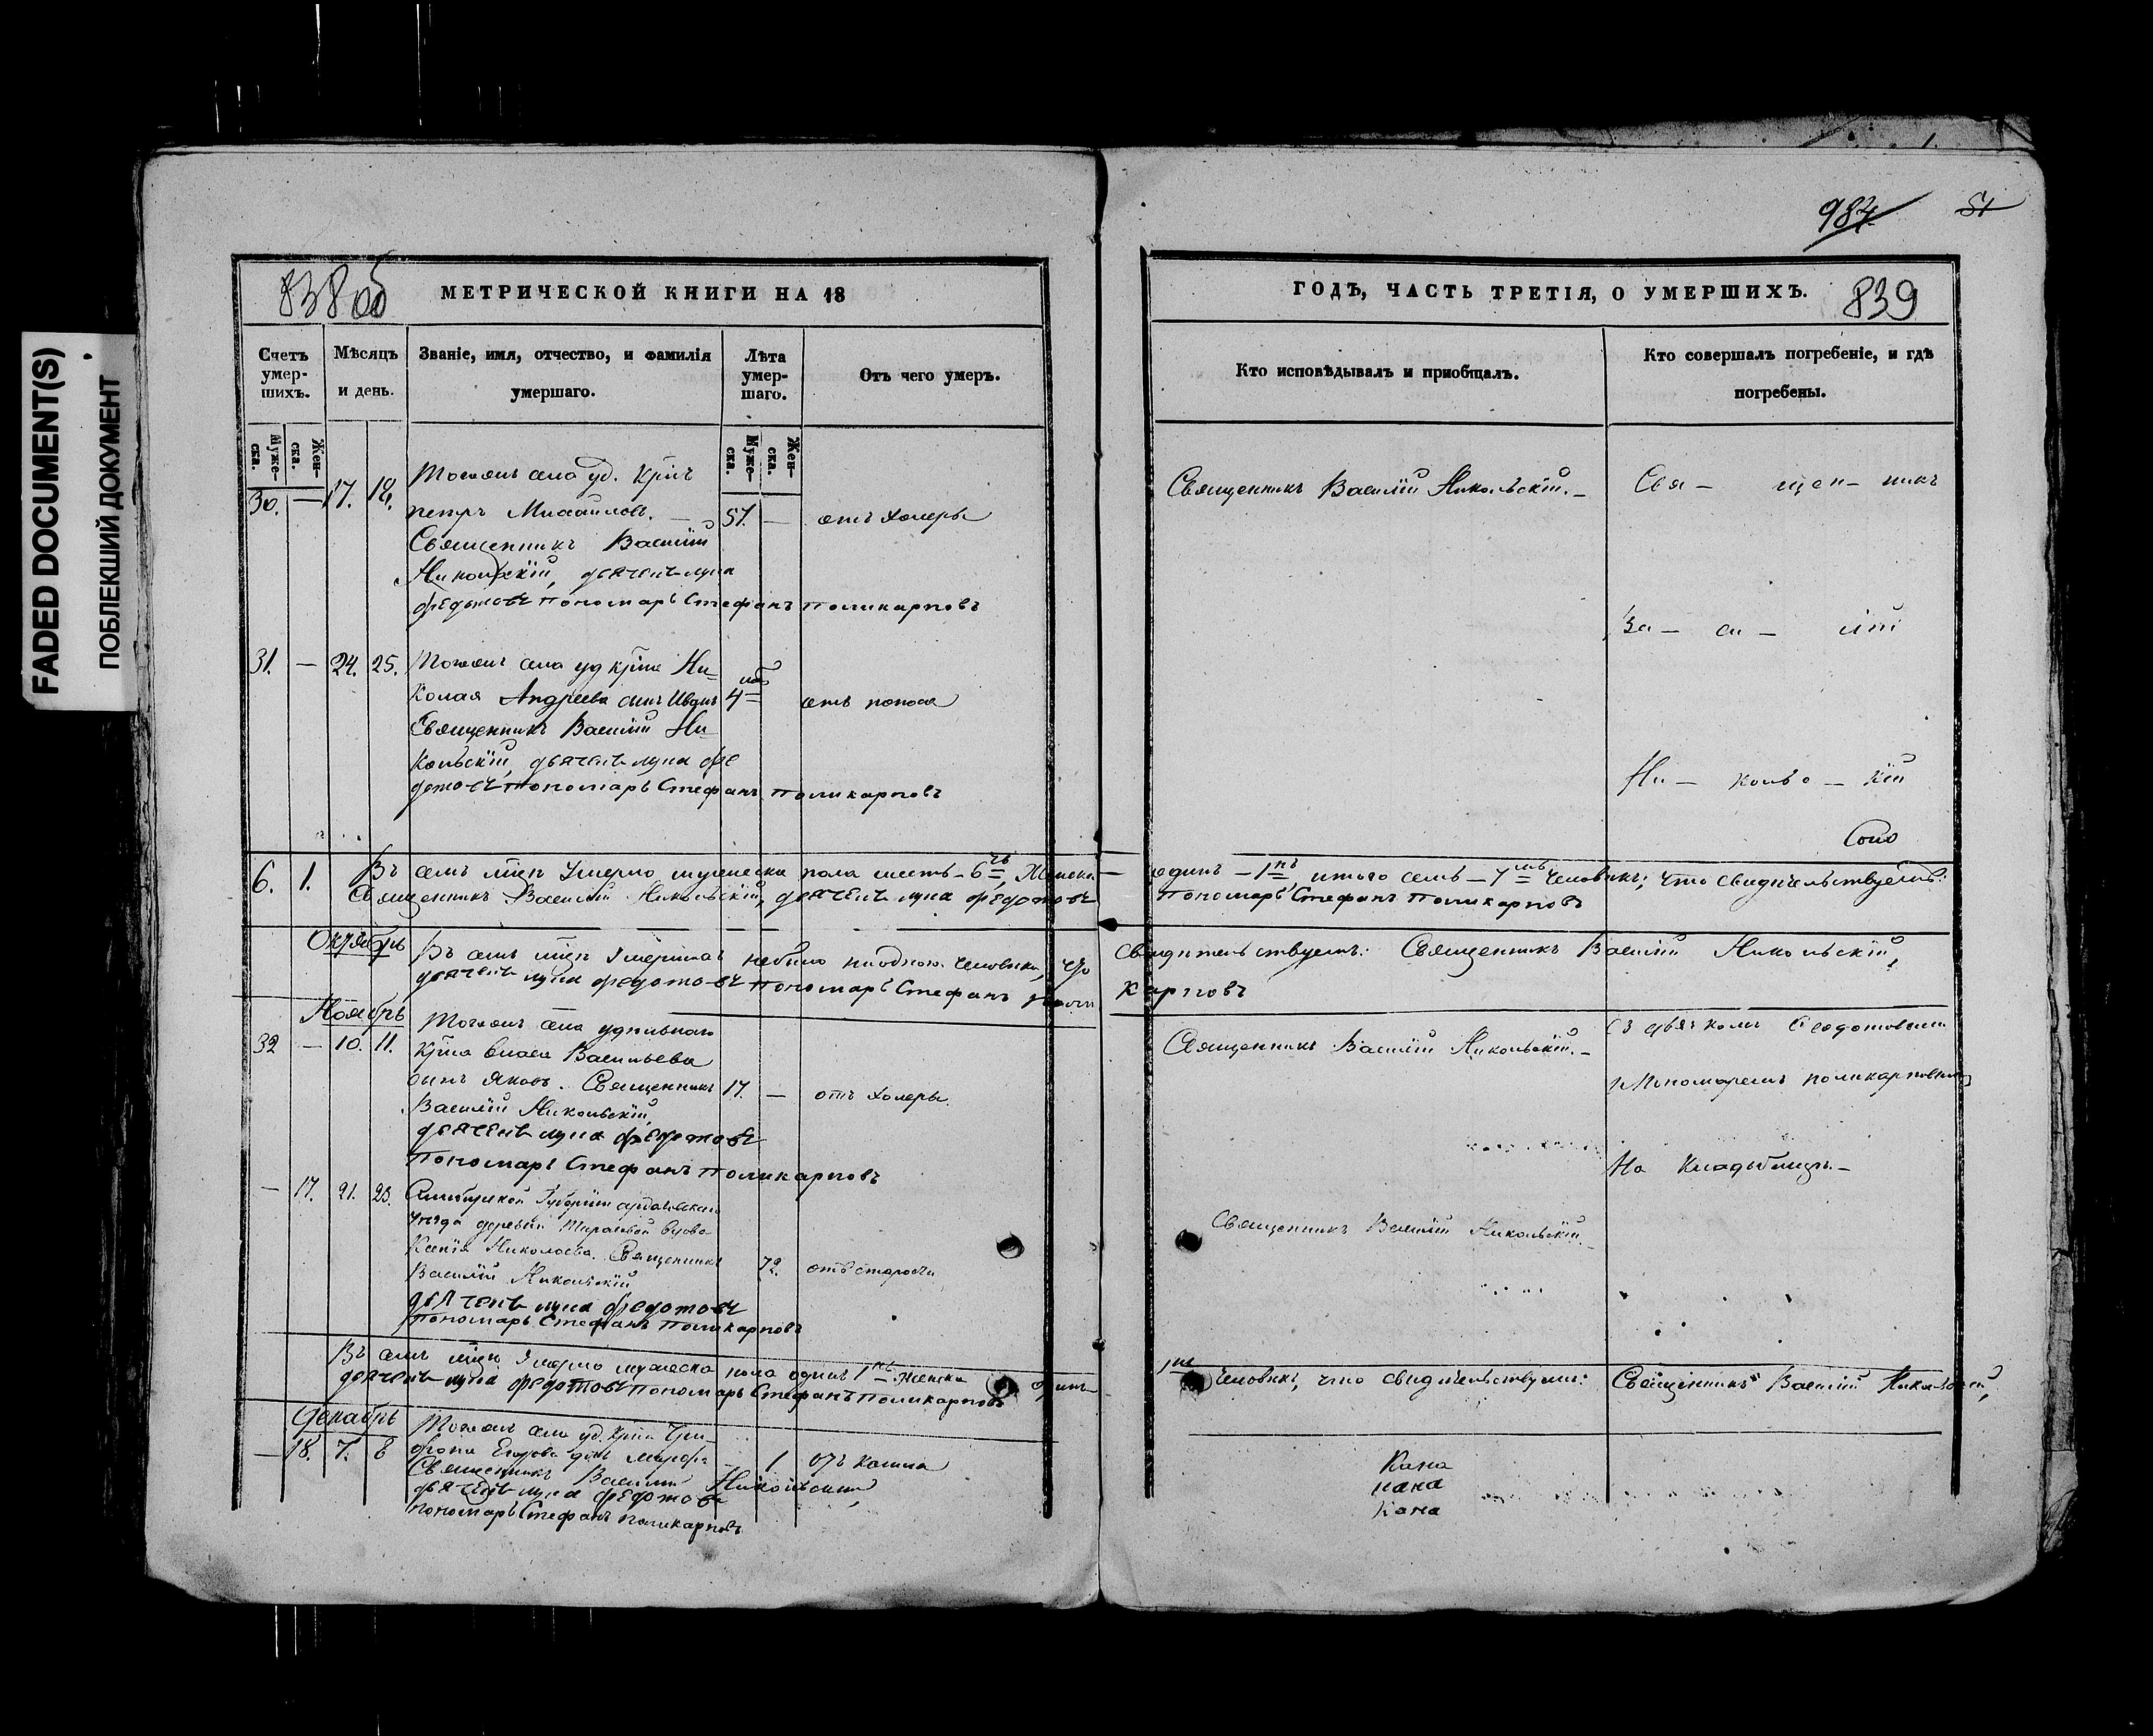 FADED DOCUMENT(S)
ПОБЛЕКШИЙ ДОКУМЕНТ
1.
984
51
838об
МЕТРИЧЕСКОЙ КНИГИ НА 18
Счетъ умер-шихъ.
Мѣсяцъ и день.
Званіе, имя, отчество, и фамилія умершаго.
Лѣта умер-шаго.
Отъ чего умеръ.
Муже-ска.
Жен-ска.
Муже-ска.
Жен-ска.
30. — 17. 19.
Тогожъ села уд. Крнъ
петръ Михайловъ. — 51. — отъ холеры
Священникъ Василій
Никольскій, дьячекъ лука
федотовъ пономарь Стефанъ поликарповъ
31. — 24. 25. Тогожъ села уд крна Ни-
колая Андреева сынъ Иванъ 4 отъ поноса
Священникъ Василій Ни-
кольскій, дьячекъ лука фе
дотовъ пономарь Стефанъ поликарповъ
6. 1. Въ семъ мцѣ Умерло мужеска пола шесть - 6ть, Женска
Священникъ Василій Никольскій, дьячекъ лука федотовъ
Октябрь
Въ семъ мцѣ Умершихъ небыло ниодного человѣка, что
дьячекъ лука федотовъ пономарь Стефанъ поли
Ноябрь
32 — 10. 11. Тогожъ села удѣльнаго
Крна Власа Васильева
сынъ Яковъ. Священникъ 17. — отъ холеры.
Василій Никольскій,
дьячекъ лука федотовъ
Пономарь Стефанъ поликарповъ
— 17. 21. 23. Симбирской Губерніи ардатовскаго
Уѣзда деревни вдова
Ксенія Николаева. Священникъ 72. отъ старости
Василій Никольскій
дьячекъ лука федотовъ
пономарь Стефанъ поликарповъ
Въ семъ мцѣ Умерло мужеска пола одинъ 1нъ. женска
дьячекъ лука федотовъ пономарь Стефанъ поликарповъ
Декабрь
— 18. 7. 8 Тогожъ села уд. крна Три-
фона Егорова дчь 1 отъ кашля
Священникъ Василій Никольскій,
дьячекъ лука федотовъ
пономарь Стефанъ поликарповъ
ГОДЪ, ЧАСТЬ ТРЕТІЯ, О УМЕРШИХЪ.
839
Кто исповѣдывалъ и пріобщалъ.
Кто совершалъ погребеніе, и гдѣ погребены.
Священникъ Василій Никольскій. —
Свя — щен — никъ
Ва — си — лій
Ни — кольс — кій
одинъ — 1нъ, итого семь — 7мь человѣкъ; что свидѣтельствуемъ:
пономарь Стефанъ поликарповъ
свидѣтельствуемъ: Священникъ Василій Никольскій,
карповъ
Священникъ Василій Никольскій. —
Съ дьячкомъ Федотовымъ
и Пономаремъ поликарповымъ
На Кладбищѣ. —
Священникъ Василій Никольскій.
1нъ человѣкъ, что свидѣтельствуемъ: Священникъ Василій Никольскій,